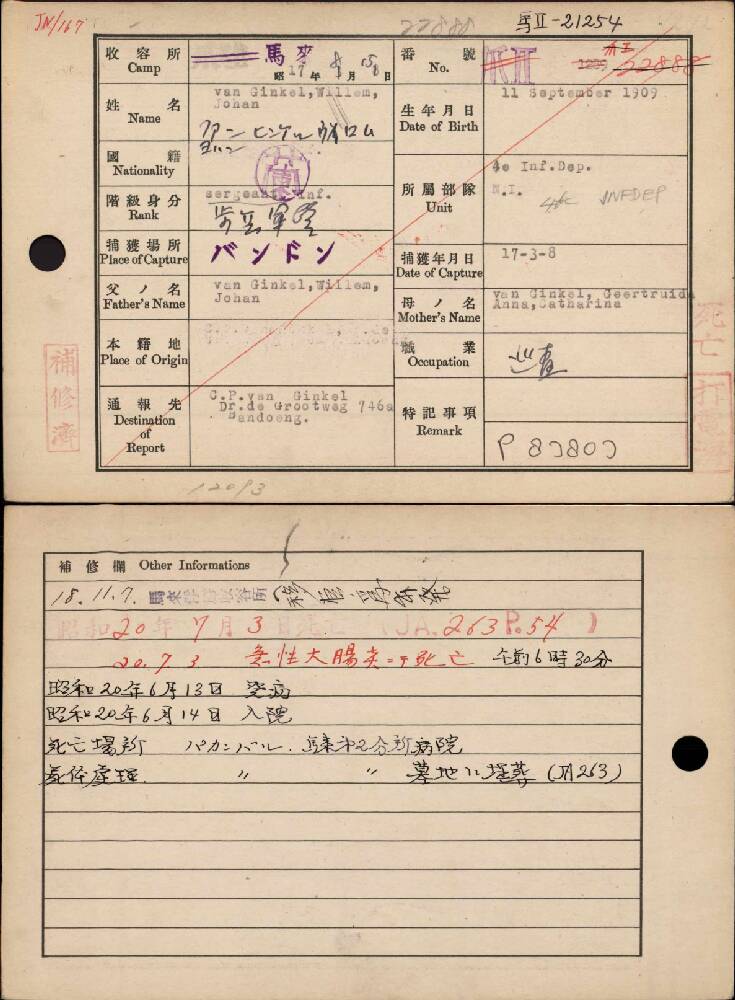 JA/167
22888
馬II-21254
収容所
Camp
馬來
昭17年8月15日
番號
No.
22888
姓名
Name
van Ginkel, Willem,
Johan
ファン ヒンケル ウイロム
ヨハン
生年月日
Date of Birth
11 September 1909
國籍
Nationality
蘭
階級身分
Rank
sergeant Inf.
所屬部隊
Unit
4e Inf.Dep.
N.I.
INFDEP
捕獲場所
Place of Capture
バンドン
捕獲年月日
Date of Capture
17-3-8
父ノ名
Father's Name
van Ginkel, Willem,
Johan
母ノ名
Mother's Name
van Ginkel, Geertruida
Anna, Catharina
本籍地
Place of Origin
職業
Occupation
巡査
通報先
Destination
of
Report
C.P.van Ginkel
Dr.de Grootweg 746a
Bandoeng.
特記事項
Remark
P 83803
補修濟
死亡
打電済
12093
補修欄 Other Informations
18.11.7. 馬来俘虜収容所
昭和20年7月3日死亡 (JA.263 P.54)
20.7.3. 急性大腸炎ニテ死亡 午前6時30分
昭和20年6月13日 発病
昭和20年6月14日 入院
死亡場所 パカンバル. 第2分所病院
死体處理. 〃 〃 墓地ニ埋葬 (JA263)